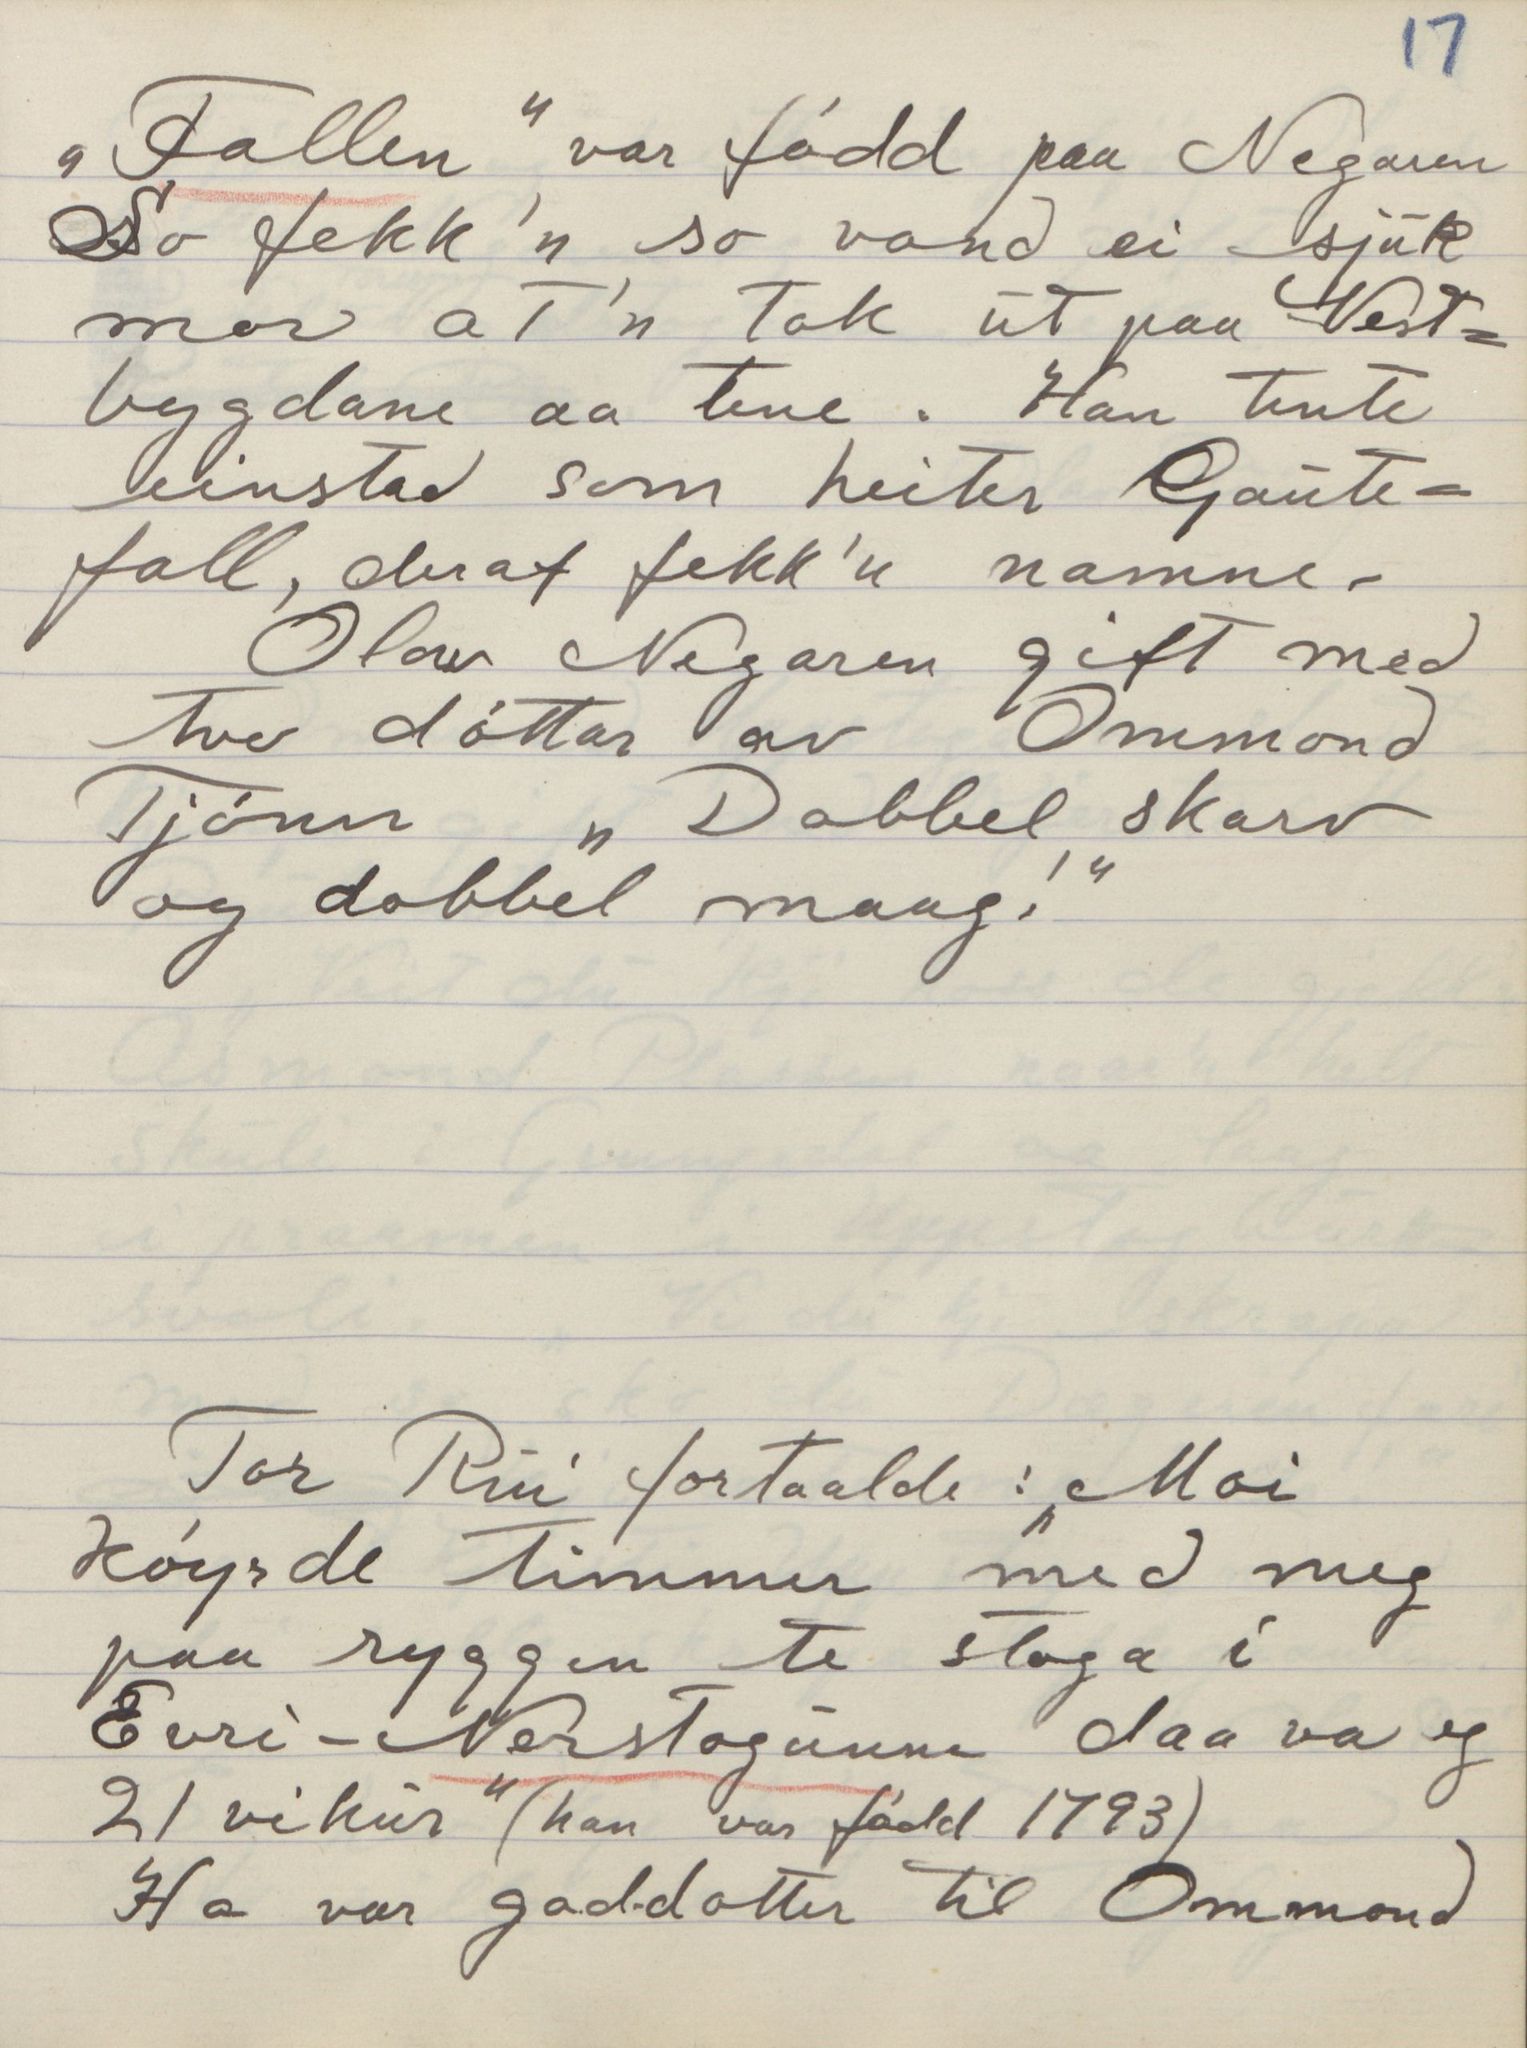 17
„Fallen" var fódd paa Negaren
So fekk'n so vond ei sjük
mor at'n tok üt paa Vest=
bygdane aa tene. Han tente
einstad som heiter Gaüte=
fall, deraf fekk'n namne.
Olav Negaren gift med
tvo dóttar av Ommond
Tjónn „Dobbel skarv
og dobbel maag!"
Tor Rüi fortaalde: „Moi
kóyrde timmer med meg
paa ryggen te stoga i
Evri-Nerstogünne daa va eg
21 vikür" (han var fódd 1793)
Ho var goddotter til Ommond